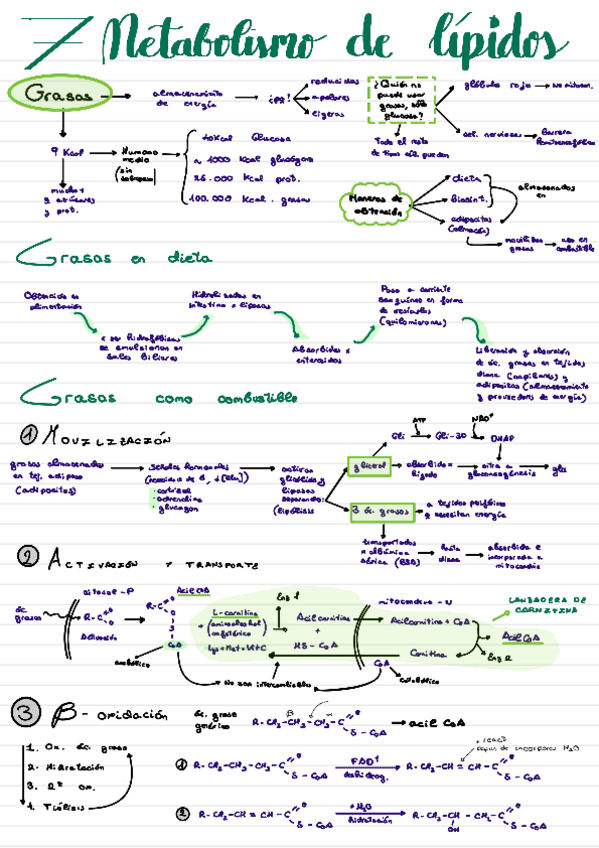 7 Metabolismo de lípidos
Grasas
almacenamiento
de energía
reducidas
apolares
ligeras
¿Quién no
puede usar
grasas, sólo
glucosa?
glóbulo rojo → No mitocon.
cél. nerviosas → Barrera
Todo el resto
de tipos sí pueden
9 Kcal
Humano
medio
40 Kcal Glucosa
~ 1000 Kcal glucógeno
25.000 Kcal prot.
100.000 Kcal grasas
mucho +
y prot.
Maneras de
obtención
dieta
Biosínt.
adipocitos
(almacén)
almacenados
en
movilizar
grasas
uso en
combustible
Grasas en dieta
Obtenidos en
alimentación
x ser hidrofóbicas
se emulsionan en
sales biliares
Hidrolizadas en
intestino x lipasas
Absorbidos x
enterocitos
Paso a corriente
sanguínea en forma
de vesículas
(quilomicrones)
Liberación y absorción
de ác. grasos en tejidos
diana (capilares) y
adipocitos (almacenamiento
y proveedores de energía)
Grasas como combustible
1 Movilización
grasas almacenadas
en tej. adiposo
(adipocitos)
señales hormonales
· cortisol
· adrenalina
· glucagón
activan
lipasas
separando:
(lipólisis)
glicerol
absorbido x
hígado
entra a
gluconeogénesis
glu
Gli → Gli-3P → DHAP
ATP
NAD⁺
3 ác. grasos
a tejidos periféricos
q necesitan energía
transportados
x albúmina
sérica (BSA)
hasta
diana
absorbido e
incorporado a
mitocondria
2 Activación y transporte
ác.
grasos
citosol - P
R-C
Activación
Acil CoA
R-C
S
CoA
anabólico
L-carnitina
(aminoalcohol
Lys+Met+Vit C
Enz 1
Acilcarnitina
+
HS-CoA
mitocondria - N
Acilcarnitina + CoA
Carnitina
Acil CoA
Enz 2
LANZADERA DE
CARNITINA
CoA
catabólico
No son intercambiables
3 β-oxidación
ác. graso
genérico
β
R-CH₂-CH₂-CH₂-C
S-CoA
→ acil CoA
1. Ox. ác. graso
2. Hidratación
3. 2ª ox.
4. Tiólisis
1 R-CH₂-CH₂-CH₂-C
S-CoA
FAD⁺
deshidrog.
R-CH₂-CH=CH-C
S-CoA
capaz de incorporar H₂O
2 R-CH₂-CH=CH-C
S-CoA
+H₂O
hidratación
R-CH₂-CH-CH₂-C
OH
S-CoA